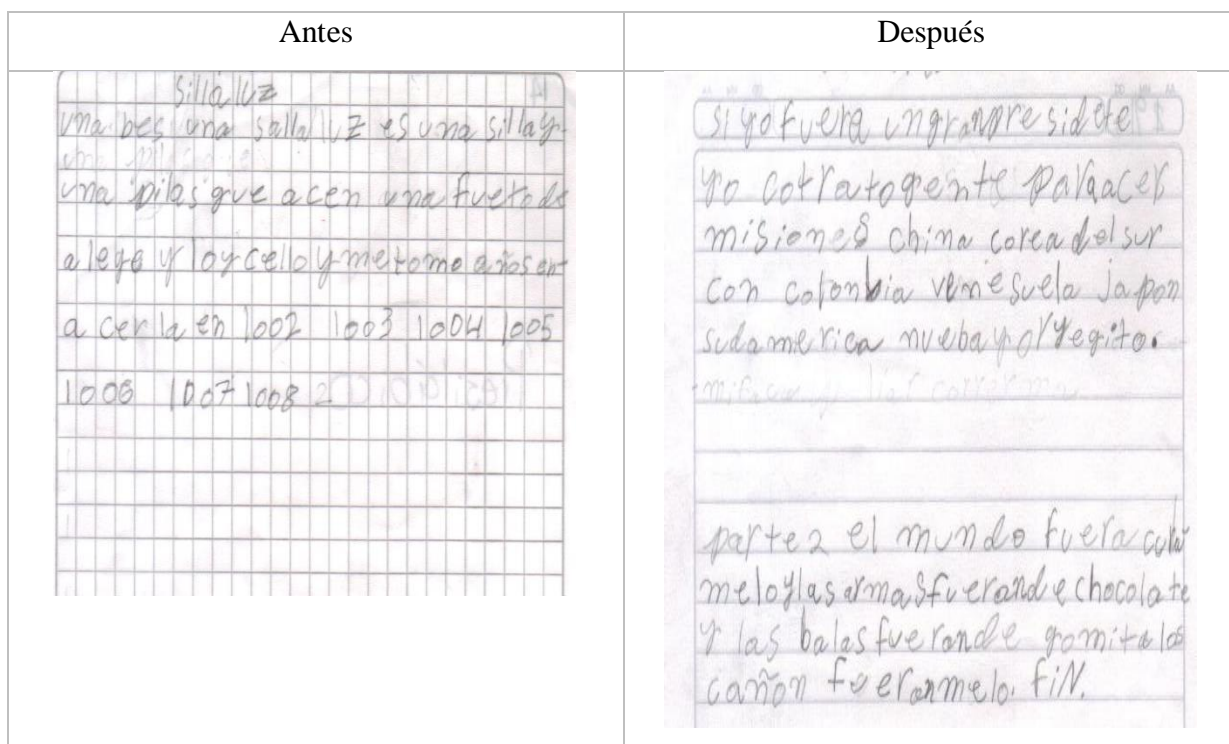 Antes
silla luz
una bes una salla luz es una silla y
una pilas que acen una fueto de
a lege y loy cello y me tomo años en
a cer la en 1002 1003 1004 1005
1006 1007 1008
Después
si yo fuera un gran presidete
yo cotrato gente para acer
misiones china corea del sur
con colonbia venesuela japon
sudamerica nueba yor y egito.
parte 2 el mundo fuera
melo y las armas fueran de chocolate
y las balas fueran de gomita los
cañon fueran melo. FiN.